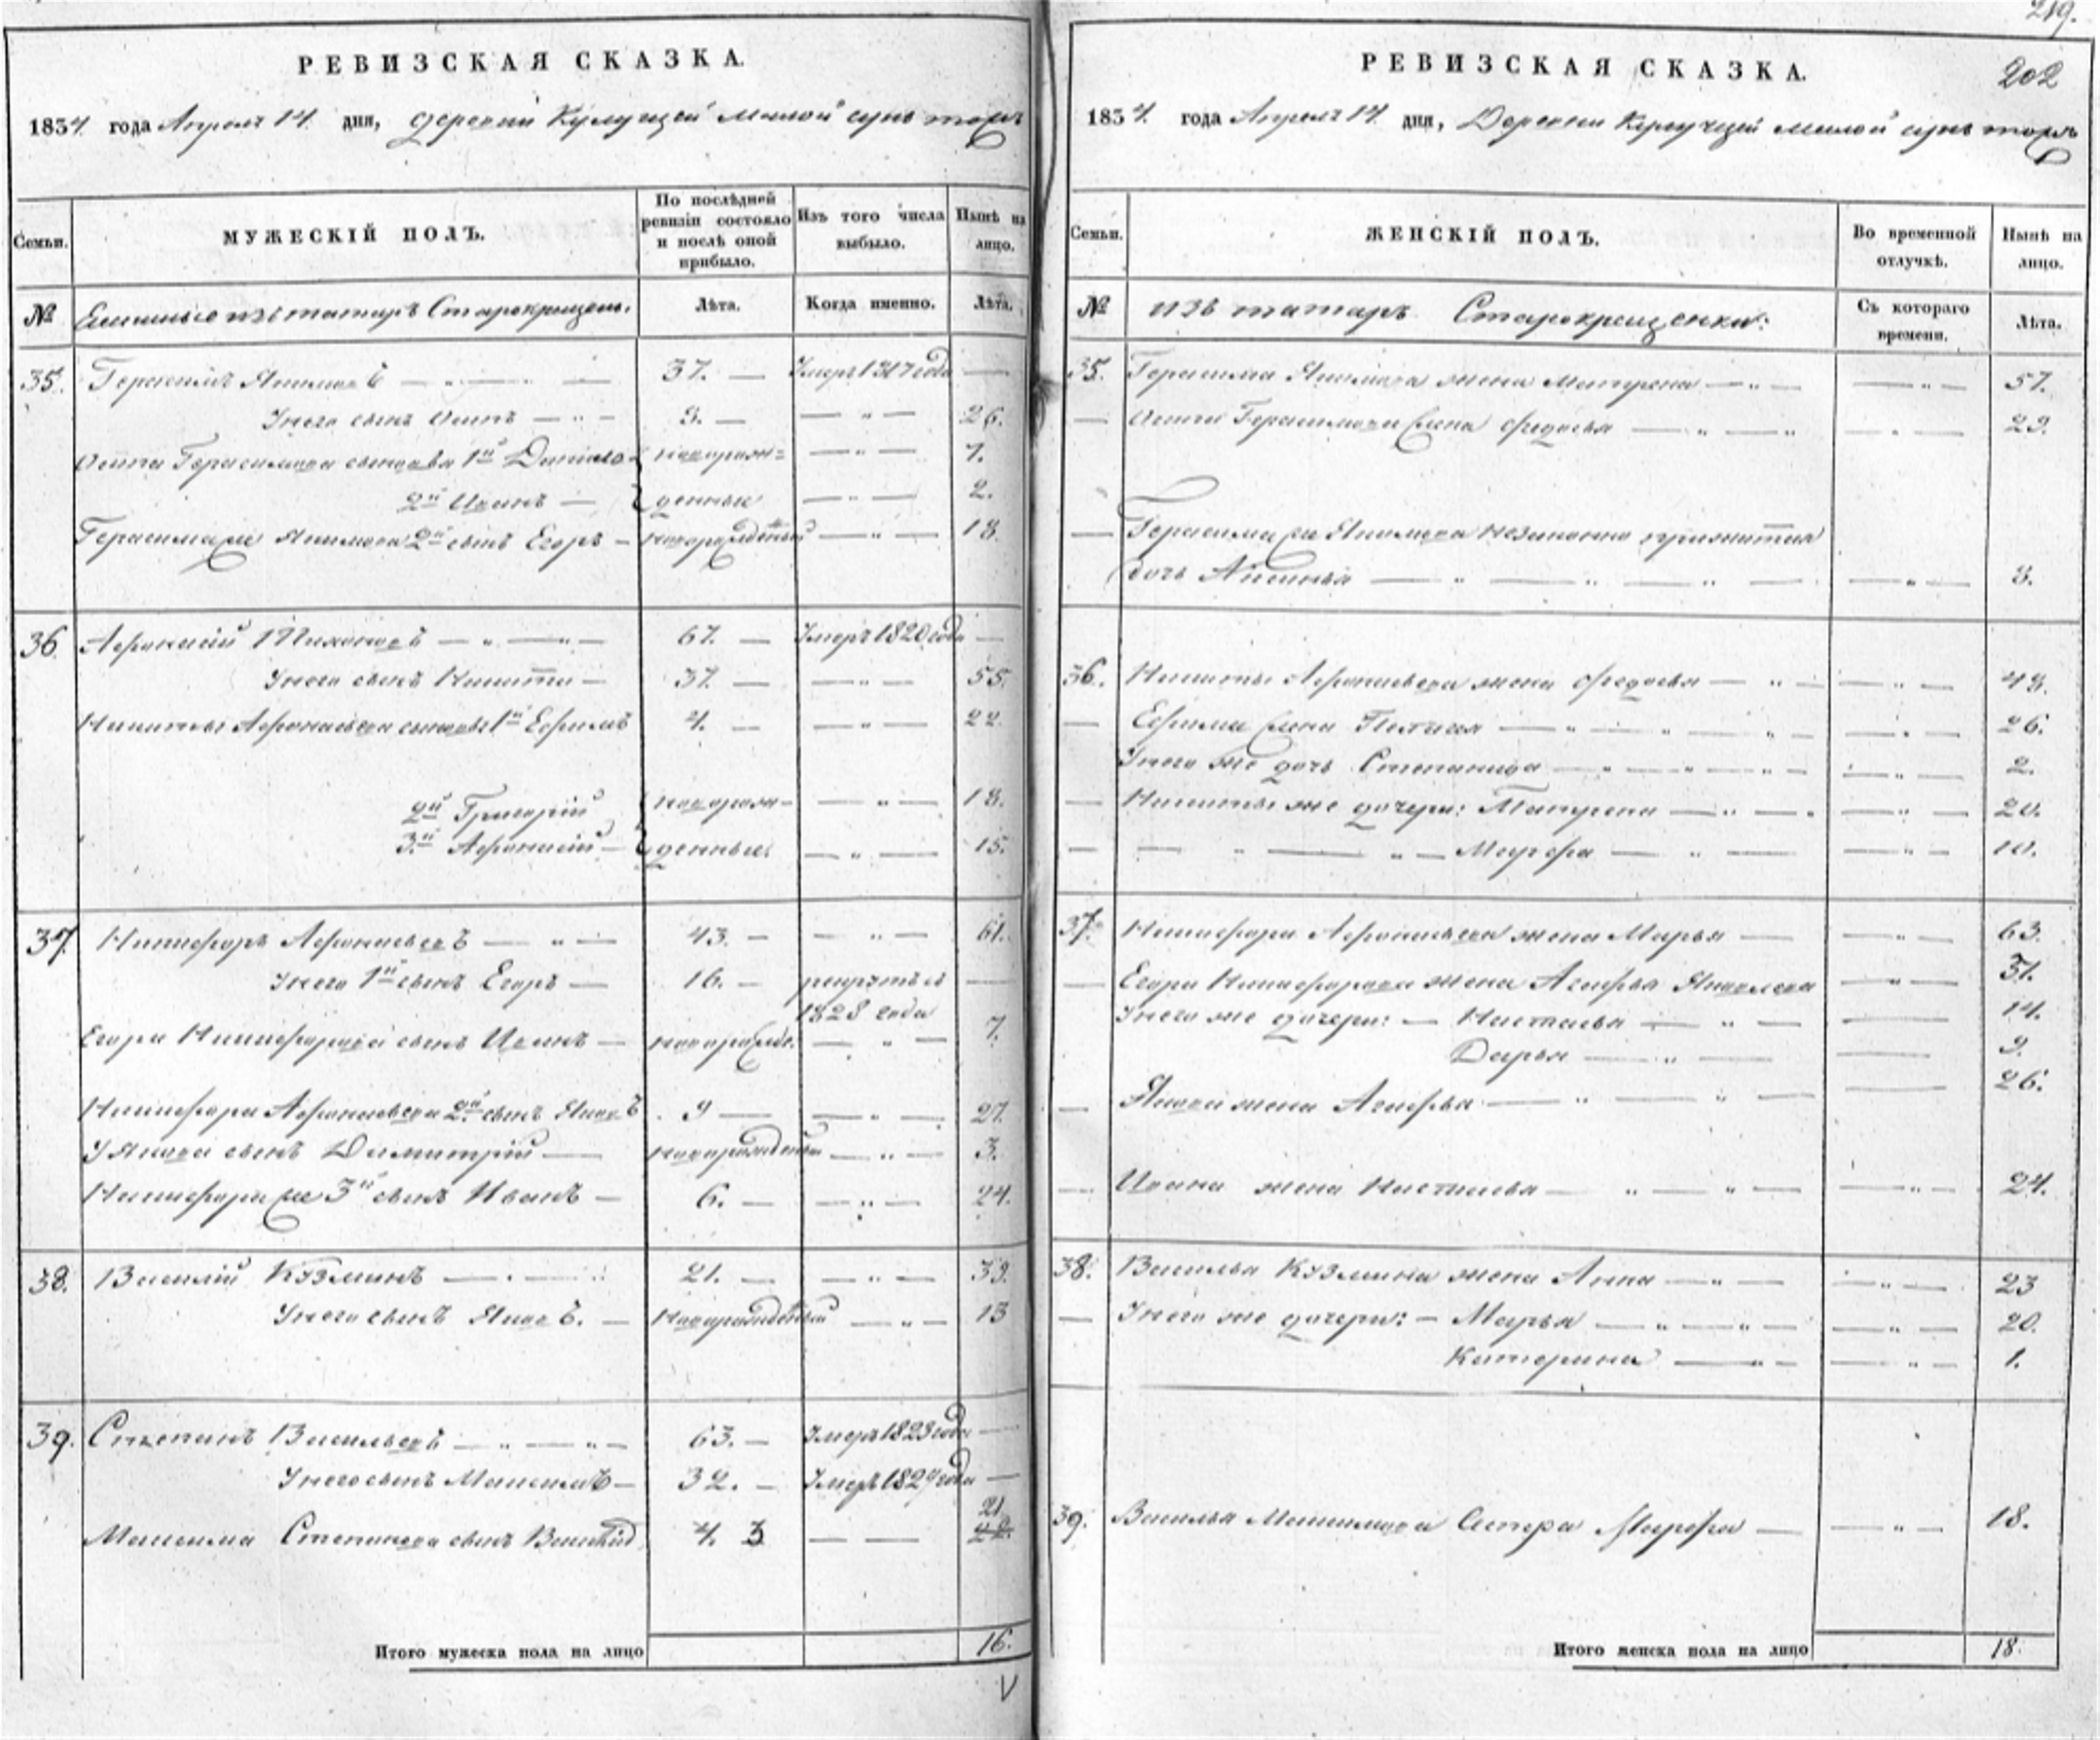 РЕВИЗСКАЯ СКАЗКА.
1834. года Апреля 14. дня, деревни малой
Семьи.
МУЖЕСКІЙ ПОЛЪ.
По послѣдней ревизіи состояло и послѣ оной прибыло.
Изъ того числа выбыло.
Нынѣ на лицо.
№
изъ татаръ Старокрещены.
Лѣта.
Когда именно.
Лѣта.
35. Герасимъ 37. — Умеръ 1817 года —
У него сынъ Осипъ — 26.
Осипа Герасимова сыновья 1й Данило новорож- 7.
2й Иванъ — денные 2.
Герасима же 2й сынъ Егоръ — новорожденный 18.
36 Афанасій Тихоновъ 67. — Умеръ 1820 года —
У него сынъ Никита — 37. — 55.
Никиты Афанасьева сыновья 1й Ефимъ 4. — 22
2й Григорій новорож- 18.
3й Афанасій — денные. 15.
37. Никифоръ Афанасьевъ 43. — 61.
У него 1й сынъ Егоръ — 16. —
1828 года
Егора Никифорова сынъ Иванъ — новорожд. 7.
Никифора Афанасьева 2й сынъ Яковъ 9 — 27.
У Якова сынъ Димитрій — новорожденный 3.
Никифора же 3й сынъ Иванъ — 6. — 24.
38. Василій Кузминъ 21. — 39.
У него сынъ Яковъ. — новорожденный 13
39. Степанъ Васильевъ 63. — Умеръ 1823 года —
У него сынъ Максимъ — 32. — Умеръ года —
21
Максима Степанова сынъ Василій 4. 3 — 22.
Итого мужеска пола на лицо 16.
V
219.
202
РЕВИЗСКАЯ СКАЗКА.
1834. года Апреля 14. дня, Деревни малой
Семьи.
ЖЕНСКІЙ ПОЛЪ.
Во временной отлучкѣ.
Нынѣ на лицо.
№
изъ татаръ Старокрещенки:
Съ котораго времени.
Лѣта.
35. Герасима жена Матрена 57.
Осипа Герасимова жена Федосья 29.
Герасима же незаконно прижитая
дочь Аксинья 8.
36. Никиты Афанасьева жена Федосья 48.
Ефима жена 26.
У него же дочь Степанида 2.
Никиты же дочери: Матрена 20.
Марфа 10.
37. Никифора Афанасьева жена Марья 63.
Егора Никифорова жена Агафья
У него же дочери: — Настасья 14.
Дарья 9.
Якова жена Агафья 26.
Ивана жена Настасья 24.
38. Василья Кузмина жена Анна 23
У него же дочери: — Марья 20.
Катерина 1.
39. Василья Максимова Сестра Марфа — 18.
Итого женска пола на лицо 18.